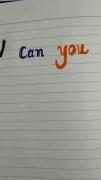 can you